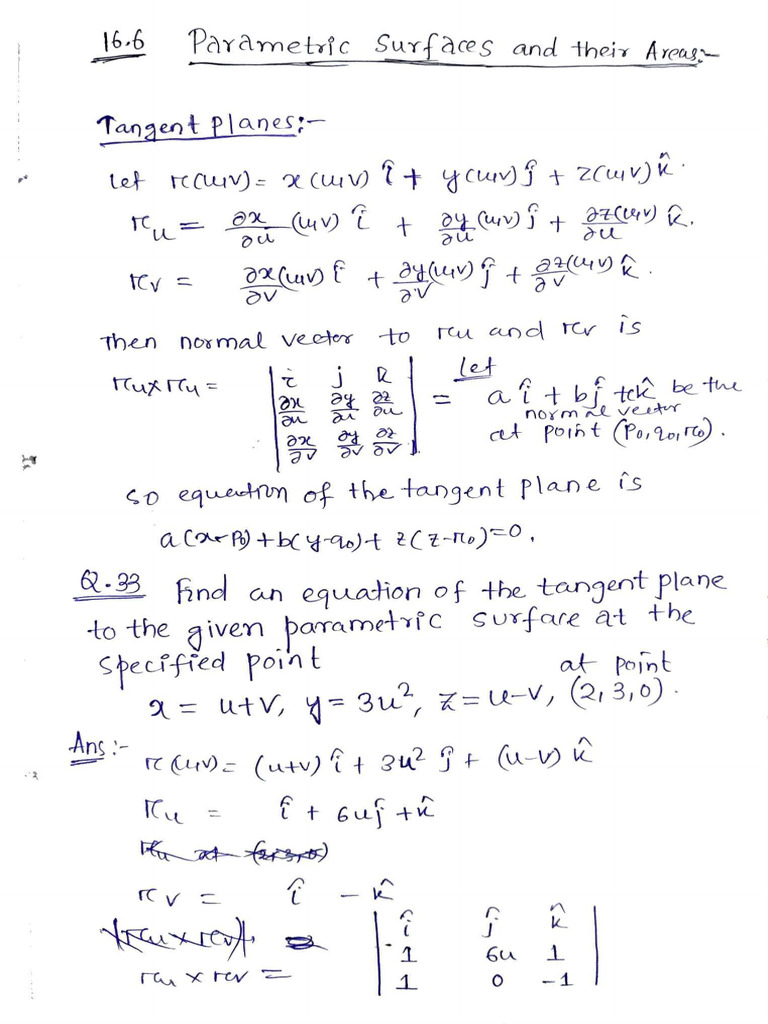 16.6 Parametric surfaces and their Areas:-
Tangent planes:-
Let r(u,v) = x(u,v) î + y(u,v) ĵ + z(u,v) k̂.
r_u = ∂x/∂u (u,v) î + ∂y/∂u (u,v) ĵ + ∂z(u,v)/∂u k̂.
r_v = ∂x(u,v)/∂v î + ∂y(u,v)/∂v ĵ + ∂z(u,v)/∂v k̂.
Then normal vector to r_u and r_v is
r_u x r_u = | i j k | = Let a î + b ĵ + c k̂ be the
| ∂x/∂u ∂y/∂u ∂z/∂u | normal vector
| ∂x/∂v ∂y/∂v ∂z/∂v | at point (p₀, q₀, r₀).
so equation of the tangent plane is
a(x-p₀) + b(y-q₀) + z(z-r₀) = 0.
Q.33 Find an equation of the tangent plane
to the given parametric surface at the
specified point at point
x = u+v, y = 3u², z = u-v, (2,3,0).
Ans:-
r(u,v) = (u+v) î + 3u² ĵ + (u-v) k̂
r_u = î + 6u ĵ + k̂
r_v = î - k̂
| î ĵ k̂ |
r_u x r_v = | 1 6u 1 |
| 1 0 -1 |